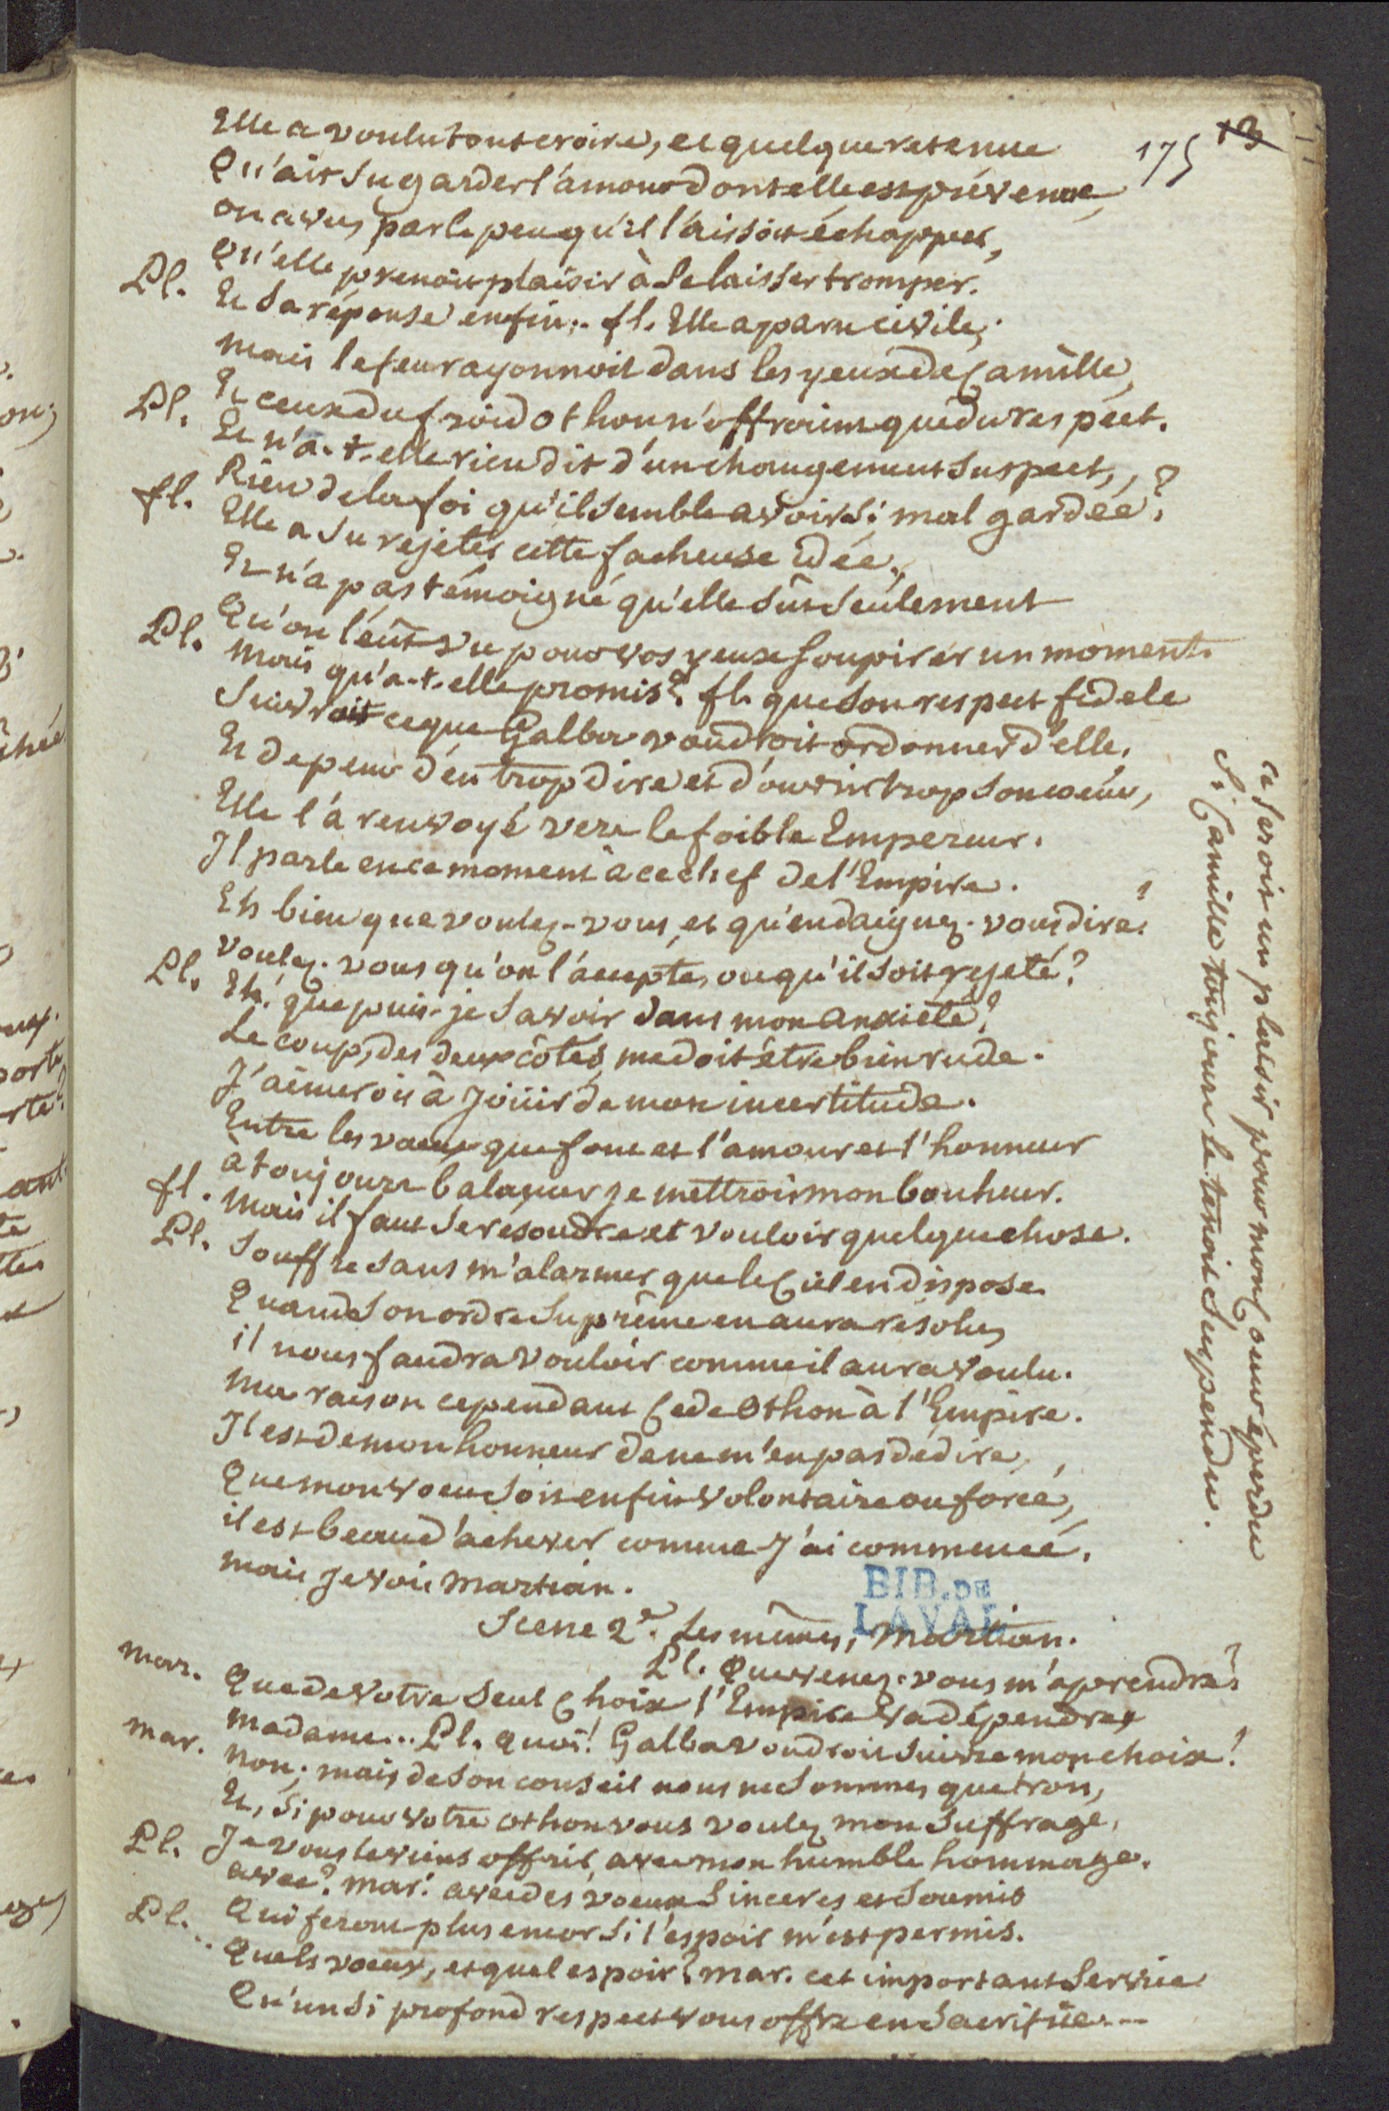 175 13
Elle a voulu tout croire, et quelque retenue
Qu'ait su garder l'amour dont elle est prévenue,
on a vu, par le peu qu'il laissoit échapper,
Qu'elle prenoit plaisir à se laisser tromper.
Pl. Et sa réponse enfin.. fl. Elle a paru civile;
mais le feu rayonnoit dans les yeux de Camille,
Et ceux du froid Othon n'offroient que du respect.
Pl. Et n'a-t-elle rien dit d'un changement suspect,
Rien de la foi qu'il semble avoir si mal gardée?
fl. Elle a su rejeter cette facheuse idée,
Et n'a pas témoigné qu'elle sût seulement
Qu'on l'eût vu pour vos yeux soupirer un moment.
Pl. Mais qu'a-t-elle promis? fl. que son respect fidele
Suivroit ce que Galba voudroit ordonner d'elle.
Et de peur d'en trop dire et d'ouvrir trop son coeur,
Elle l'a renvoyé vers le foible Empereur.
Il parle en ce moment à ce chef de l'Empire.
Eh bien que voulez-vous, et qu'en daignez-vous dire?
voulez-vous qu'on l'accepte, ou qu'il soit rejeté?
Pl. Eh! que puis-je savoir dans mon anxiété?
Le coup, des deux côtés, me doit être bien rude.
J'aimerois à joüir de mon incertitude.
Entre les voeux que font et l'amour et l'honneur
à toujours balancer je mettrois mon bonheur.
fl. Mais il faut se résoudre et vouloir quelque chose.
Pl. Souffre sans m'alarmer que le Ciel en dispose
Quand son ordre suprême en aura résolu,
il nous faudra vouloir comme il aura voulu.
Ma raison cependant cede Othon à l'Empire.
Il est de mon honneur de ne m'en pas dédire,
Que mon voeu soit enfin volontaire ou forcé,
il est beau d'achever comme j'ai commencé.
mais je vois Martian.
Scene 2e. Les mêmes, Martian.
Pl. Que venez-vous m'aprendre?
Mar. Que de votre seul choix l'Empire va dépendre,
madame... Pl. quoi! Galba voudroit suivre mon choix!
Mar. Non; mais de son conseil nous ne sommes que trois,
Et, si pour votre Othon vous voulez mon suffrage,
Je vous le viens offrir avec mon humble hommage.
Pl. avec? Mar. avec des voeux sinceres et soumis
Qui feront plus encor si l'espoir m'est permis.
Pl. Quels voeux, et quel espoir? Mar. cet important service
Qu'un si profond respect vous offre en sacrifice...
ce seroit un plaisir pour mon coeur éperdu
Si Camille toujours le tenoit suspendu.
BIB. DE
LAVAL